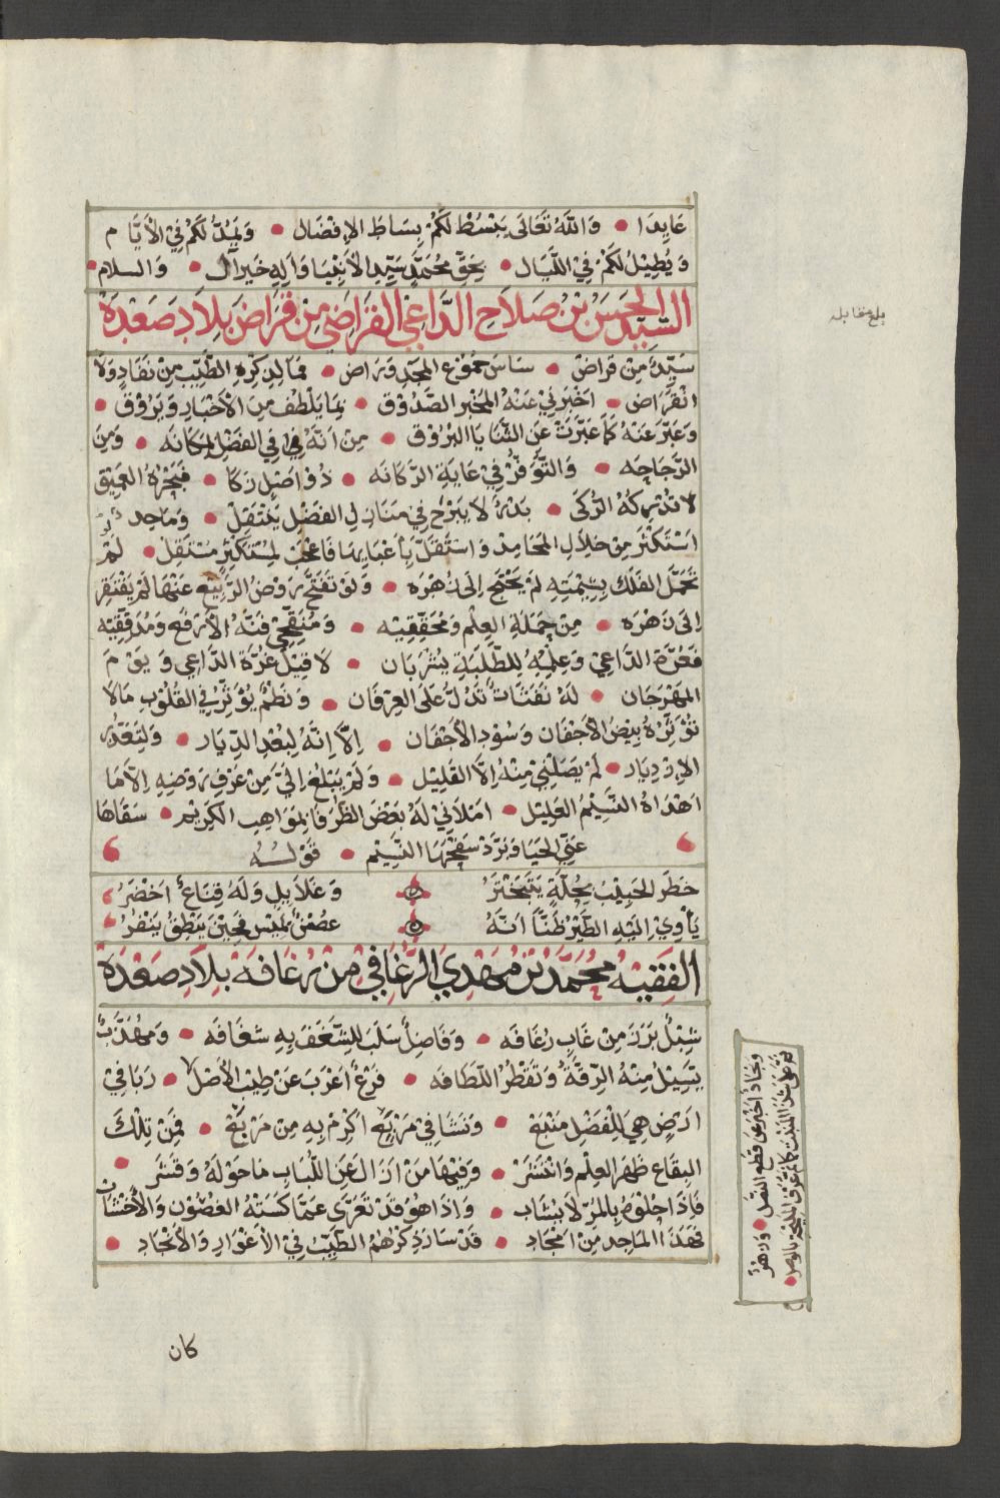 عَايِدَا • وَاللّهُ تَعَالَى يَبْسُطْ لَكُمْ بِسَاطَ الإِفْضَال • وَيَمُدُّ لَكُمْ فِي الأَيَّام
وَيُطِيْلُ لَكُمْ فِي اللَّيَال • بِحَقِّ مُحَمَّدٍ سَيِّدِ الأَنْبِيَا وَآلِهِ خَيرِ آل • وَالسلام •
السَّيِّد الحَسَنُ بْنُ صَلَاحِ الدَّاعِي الفَرَاضِي مِنْ فَرَاضَ بِلَادِ صَعْدَة
سَيِّدٌ مِنْ فَرَاضْ • سَاسَ جَمُوْع المَجْدِ وَرَاض • فَمَا لِذِكْرِهِ الطَّيِّبِ مِنْ نَفَادٍ وَلَا
انْقَرَاض • اخْبَرَنِي عَنْهُ المُخْبِر الصَّدُوْق • بِمَا يَلْطُف مِنَ الأَخْبَارِ وَيَرُوْق •
وَعَبَّرَ عَنْهُ كَمَا عَبَّرَتْ عَنِ الثَّنَايَا البُرُوْق • مِنْ انَّهُ فِي الفَضْلِ المَكَانَه • وَمِنَ
الرَّجَاحَه • وَالتَّوَقُّرْ فِي غَايَةِ الرَّكَانَه • ذُوْ اصْلٍ زَكَا • فَبَحْرُهُ العَمِيْق
لَا تُدْرِكهُ الرُّكَى • بَدْرٌ لَا يَبْرَحُ فِي مَنَازِلِ الفَضْلِ يَنْتَقِلْ • وَمَاجِد
اسْتَكْثَرَ مِنْ خِلَالِ المَحَامِدْ وَاسْتَقَلَّ بِأَعْبَايِهَا فَاعْجَبْ لِمُسْتَكْثِرٍ مُسْتَقِلْ • لَوْ
تَحَمَّلَ الفَلَك بِشِيْمَتِهِ لَمْ يَحْتَجْ إِلَى زُهْرَه • وَلَوْ تَفَتَّحَ رَوْضُ الرَّبِيْعِ عَنْهَا لَمْ يَفْتَقِرْ
إِلَى زَهْرَه • مِنْ حَمَلَةِ العِلْم وَمُحَقِّقِيْه • وَمُنَقِّحِي فَنِّهُ الأَرْفَع وَمُدَقِّقِيْه
فَغُرَّة الدَّاعِي وَعِلْمِهُ لِلطَّلَبَةِ يَنْثُرَ بَان • لَا قِيْلَ غُرَّة الدَّاعِي وَيَوْم
المَهْرَجَان • لَهُ نَفَثَاتٌ تَدُلُّ عَلَى العِرْفَان • وَنَظْمٌ يُؤَثِّرُ فِي القُلُوْبِ مَا لَا
تُؤَثِّرُهُ بِيْضُ الأَجْفَان وَسُوْد الأَجْفَان • إِلَّا إِنَّهُ لِبُعْدِ الدِّيَار • وَلِتَعَذُّر
الإِزْدِيَار • لَمْ يَصِلْنِيْ مِنْهُ إِلَّا القَلِيْل • وَلَمْ يَبْلُغ إِلَيَّ مِنْ عَرْفِ رَوْضِهِ إِلَّا مَا
اهْدَاهُ النَّسِيْمُ العَلِيْل • امْلَانِيْ لَهُ بَعْضَ الظُّرَفَا بِمَوَاهِب الكَرِيْم • سَقَاهَا
عَنِّي الحَيَا وَبَرَّدْ سَفْحَهَا النَّسِيْم • قَوْلـــه
خَطَر الحَبِيْبُ بِحُلَّةٍ يَتَبَخْتَرُ وَعَلَا بِلِ وَلَهُ قِنَاعٌ اخْضَرُ
يَأْوِيْ إِلَيْهِ الطَّيْرُ ظَنّاً انَّهُ غصْنٌ يَمِيْسُ فَحِيْنَ يَنْطِقُ يَنْفُرُ
الفَقِيْه مُحَمَّدُ بْن مَهْدِي الرُّغَافِي مِنْ رُغَافَة بِلَادِ صَعْدَة
شِبْلٌ بَرَزَ مِنْ غَابِ رُغَافَه • وَفَاضِلٌ سَلَبَ لِلشَّغَفِ بِهِ شَغَافَه • وَمُهَذَّبٌ
يَسِيْلُ مِنْهُ الرِّقَّةُ وَتَقْطُرُ اللَّطَافَه • فَرْعٌ اعْرَبَ عَنْ طِيْبِ الأَصْل • رَبَا فِيْ
ارْضٍ هِيَ لِلْفَضْلِ مَنْبَعَهْ • وَنَشَا فِيْ مَرْبَعٍ اكْرِمْ بِهِ مِنْ مَرْبَعَهْ • فَمِنْ تِلْكَ
البِقَاع ظَهَرَ العِلْم وَانْتَشَرْ • وَفِيْهَا مَنْ ازَالَ عَنِ اللُّبَابِ مَا حَوْلَهُ وَقَشَرْ •
فَإِذَا حُلْوٌ بِالمُرِّ لَا يُشَاب • وَاذَا هُوَ قَدْ تَعَرَّى عَمَّا كَسَتْهُ الغُصُوْن وَالأَخْشَاب
فَهَذَا المَاجِد مِنْ امْجَاد • قَدْ سَارَ ذِكْرُهُمُ الطَّيِّبُ فِيْ الأَغْوَارِ وَالأَنْجَاد •
كان